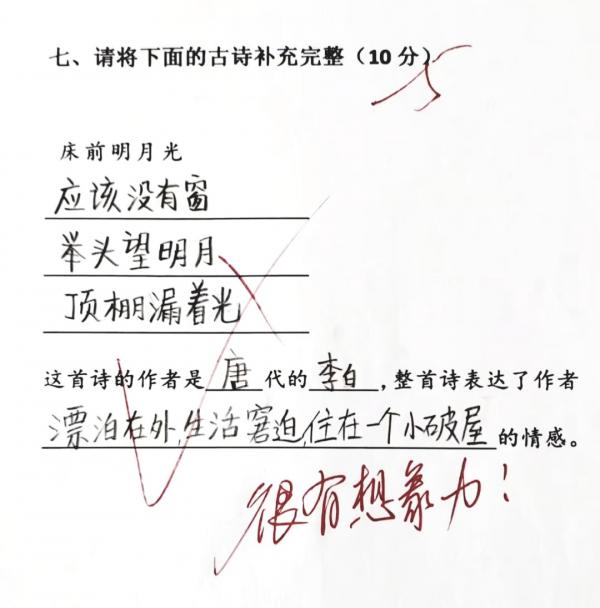 七、请将下面的古诗补充完整（10分）
5
床前明月光
应该没有窗
举头望明月
顶棚漏着光
这首诗的作者是唐代的李白，整首诗表达了作者
漂泊在外，生活窘迫，住在一个小破屋的情感。
很有想象力！